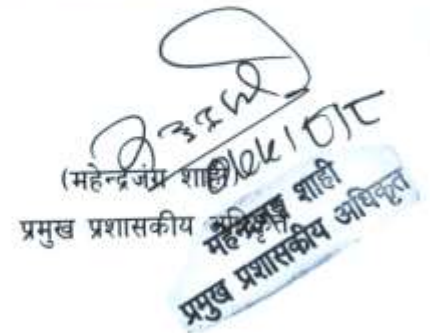 (महेन्द्रजंग शाही)
प्रमुख प्रशासकीय अधिकृत
महेन्द्रजङ्ग शाही
प्रमुख प्रशासकीय अधिकृत